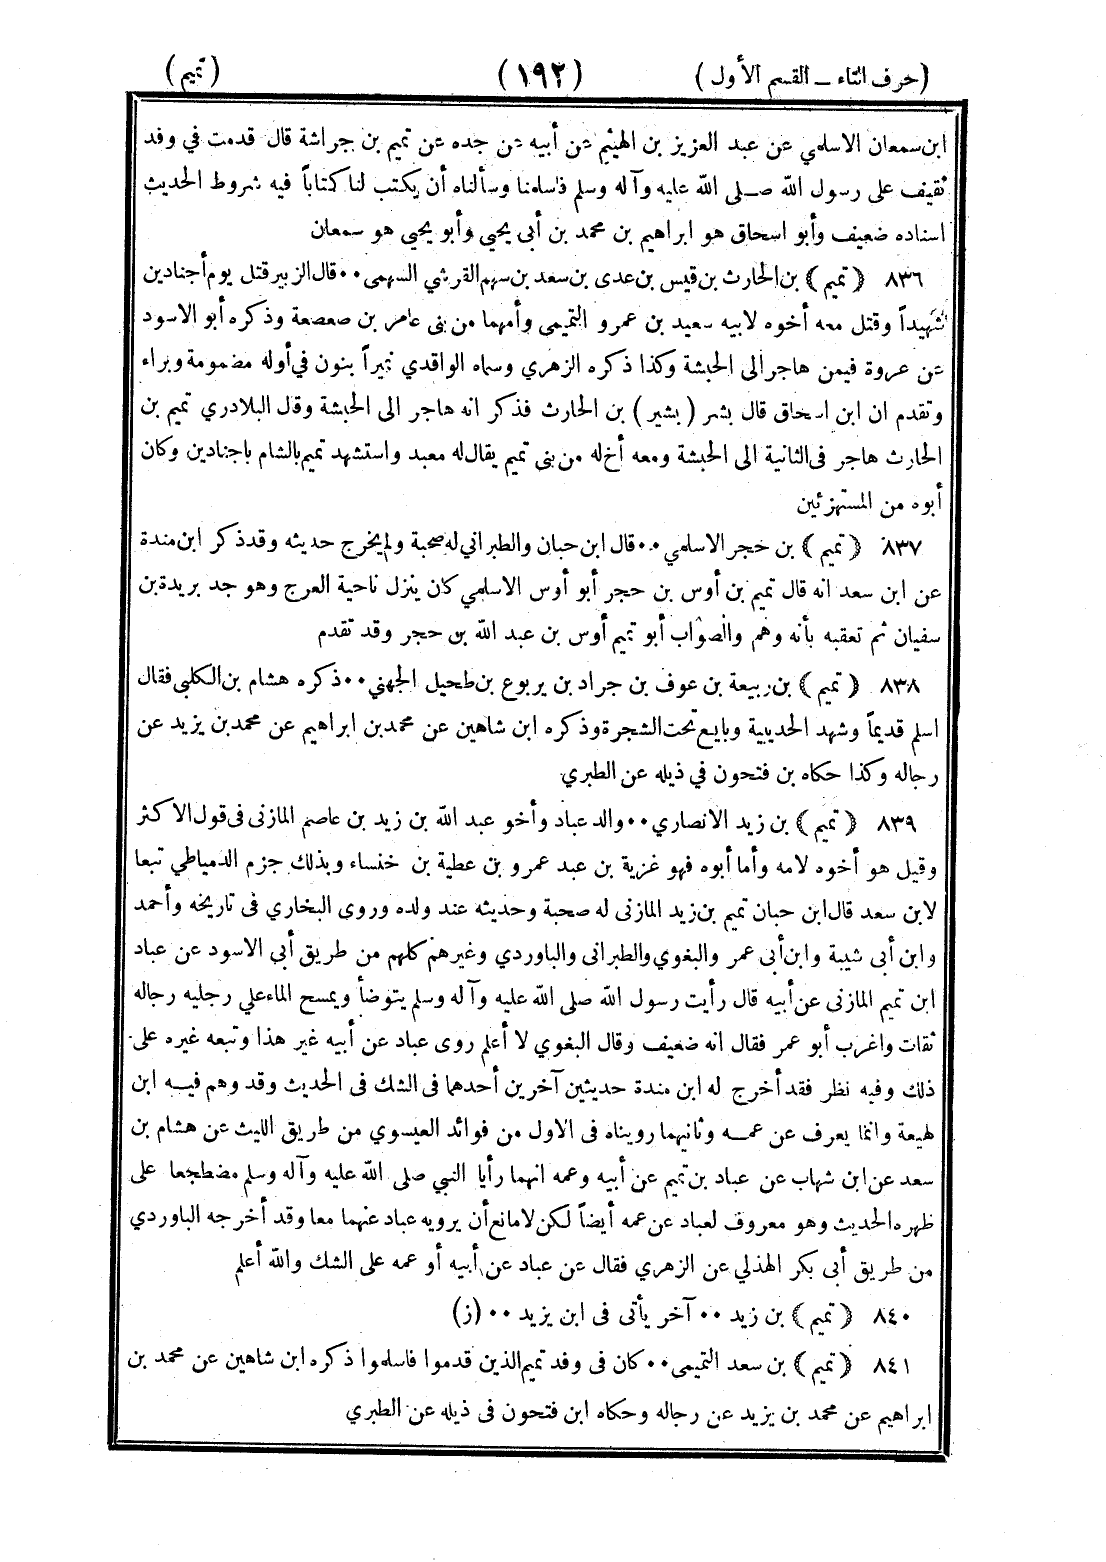 (حرف التاء ــ القسم الأول) (١٩٢) (تميم)
ابن سمعان الاسلمي عن عبد العزيز بن الهيثم عن أبيه عن جده عن تميم بن جراشة قال قدمت في وفد
ثقيف على رسول الله صلى الله عليه وآله وسلم فاسلمنا وسألناه أن يكتب لنا كتاباً فيه شروط الحديث
اسناده ضعيف وأبو اسحاق هو ابراهيم بن محمد بن أبى يحيي وأبو يحيي هو سمعان
٨٣٦ ﴿ تميم ﴾ بن الحارث بن قيس بن عدى بن سعد بن سهم القرشي السهمى ٠٠ قال الزبير قتل يوم أجنادين
شهيداً وقتل معه أخوه لابيه سعيد بن عمرو التميمى وأمهما من بنى عامر بن صعصعة وذكره أبو الاسود
عن عروة فيمن هاجر الى الحبشة وكذا ذكره الزهري وسماه الواقدي نميراً بنون في أوله مضمومة وبراء
وتقدم ان ابن اسحاق قال بشر (بشير) بن الحارث فذكر انه هاجر الى الحبشة وقال البلاذري تميم بن
الحارث هاجر فى الثانية الى الحبشة ومعه أخ له من بنى تميم يقال له معبد واستشهد تميم بالشام باجنادين وكان
أبوه من المستهزئين
٨٣٧ ﴿ تميم ﴾ بن حجر الاسلمي ٠٠ قال ابن حبان والطبراني له صحبة ولم يخرج حديثه وقد ذكر ابن مندة
عن ابن سعد انه قال تميم بن أوس بن حجر أبو أوس الاسلمي كان ينزل ناحية العرج وهو جد بريدة بن
سفيان ثم تعقبه بأنه وهم والصواب أبو تميم أوس بن عبد الله بن حجر وقد تقدم
٨٣٨ ﴿ تميم ﴾ بن ربيعة بن عوف بن جراد بن يربوع بن طحيل الجهني ٠٠ ذكره هشام بن الكلبي فقال
اسلم قديماً وشهد الحديبية وبايع تحت الشجرة وذكره ابن شاهين عن محمد بن ابراهيم عن محمد بن يزيد عن
رجاله وكذا حكاه بن فتحون في ذيله عن الطبري
٨٣٩ ﴿ تميم ﴾ بن زيد الانصاري ٠٠ والد عباد وأخو عبد الله بن زيد بن عاصم المازنى فى قول الاكثر
وقيل هو أخوه لامه وأما أبوه فهو غزية بن عبد عمرو بن عطية بن خنساء وبذلك جزم الدمياطي تبعا
لابن سعد قال ابن حبان تميم بن زيد المازنى له صحبة وحديثه عند ولده وروى البخاري فى تاريخه وأحمد
وابن أبى شيبة وابن أبى عمر والبغوي والطبرانى والباوردي وغيرهم كلهم من طريق أبي الاسود عن عباد
ابن تميم المازنى عن أبيه قال رأيت رسول الله صلى الله عليه وآله وسلم يتوضأ ويمسح الماء علي رجليه رجاله
ثقات واغرب أبو عمر فقال انه ضعيف وقال البغوي لا أعلم روى عباد عن أبيه غير هذا وتبعه غيره على
ذلك وفيه نظر فقد أخرج له ابن مندة حديثين آخرين أحدهما فى الشك فى الحديث وقد وهم فيه ابن
لهيعة وانما يعرف عن عمه وثانيهما رويناه فى الاول من فوائد العيسوي من طريق الليث عن هشام بن
سعد عن ابن شهاب عن عباد بن تميم عن أبيه وعمه انهما رأيا النبي صلى الله عليه وآله وسلم مضطجعا على
ظهره الحديث وهو معروف لعباد عن عمه أيضاً لكن لا مانع أن يرويه عباد عنهما معا وقد أخرجه الباوردي
من طريق أبى بكر الهذلي عن الزهري فقال عن عباد عن أبيه أو عمه على الشك والله أعلم
٨٤٠ ﴿ تميم ﴾ بن زيد ٠٠ آخر يأتى فى ابن يزيد ٠٠ (ز)
٨٤١ ﴿ تميم ﴾ بن سعد التميمى ٠٠ كان فى وفد تميم الذين قدموا فاسلموا ذكره ابن شاهين عن محمد بن
ابراهيم عن محمد بن يزيد عن رجاله وحكاه ابن فتحون فى ذيله عن الطبري